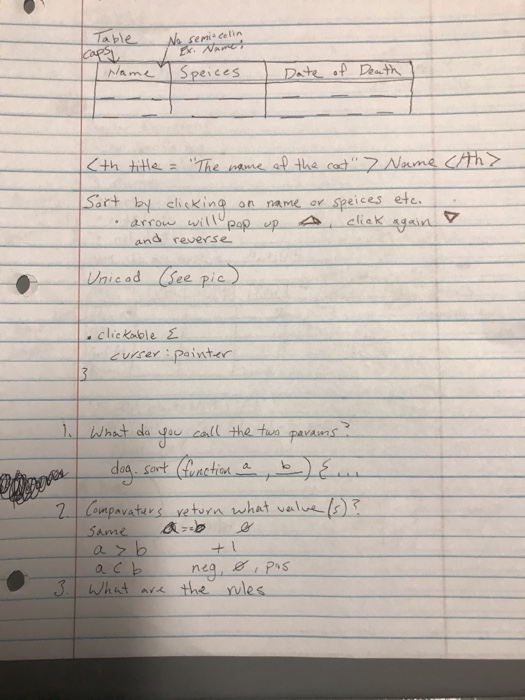 Table No semi-colin
caps Ex. Name:
Name Speices Date of Death
<th title = "The name of the cat" > Name </th>
Sort by clicking on name or speices etc.
· arrow will pop up △, click again ▽
and reverse
Unicod (See pic)
. clickable {
curser : pointer
}
1. What do you call the two params?
dog. sort (function a , b ) { ...
2. Comparaturs return what value(s)?
Same a==b 0
a > b +1
a < b neg, 0, pos
3. What are the rules